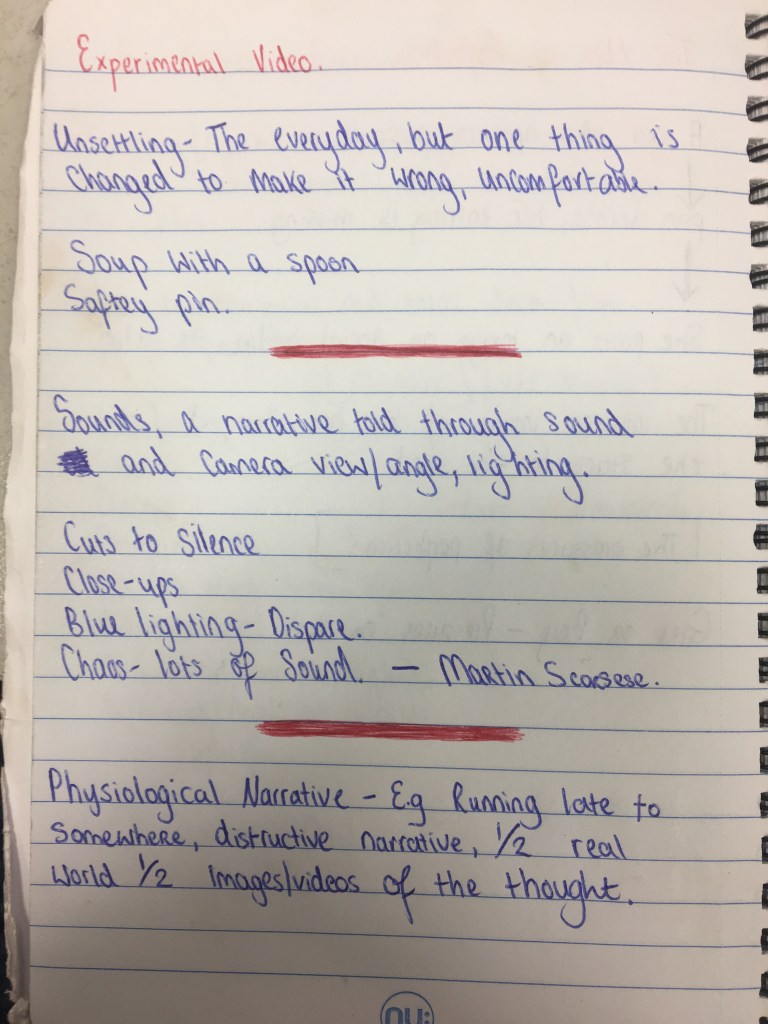 Experimental Video.
Unsettling - The everyday, but one thing is
Changed to make it wrong, uncomfortable.
Soup with a spoon
Saftey pin.
Sounds, a narrative told through sound
and Camera view/angle, lighting.
Cuts to Silence
Close-ups
Blue lighting - Dispare.
Chaos - lots of Sound. — Martin Scorsese.
Physiological Narrative - E.g Running late to
Somewhere, distructive narrative, 1/2 real
world 1/2 images/videos of the thought.
nu: